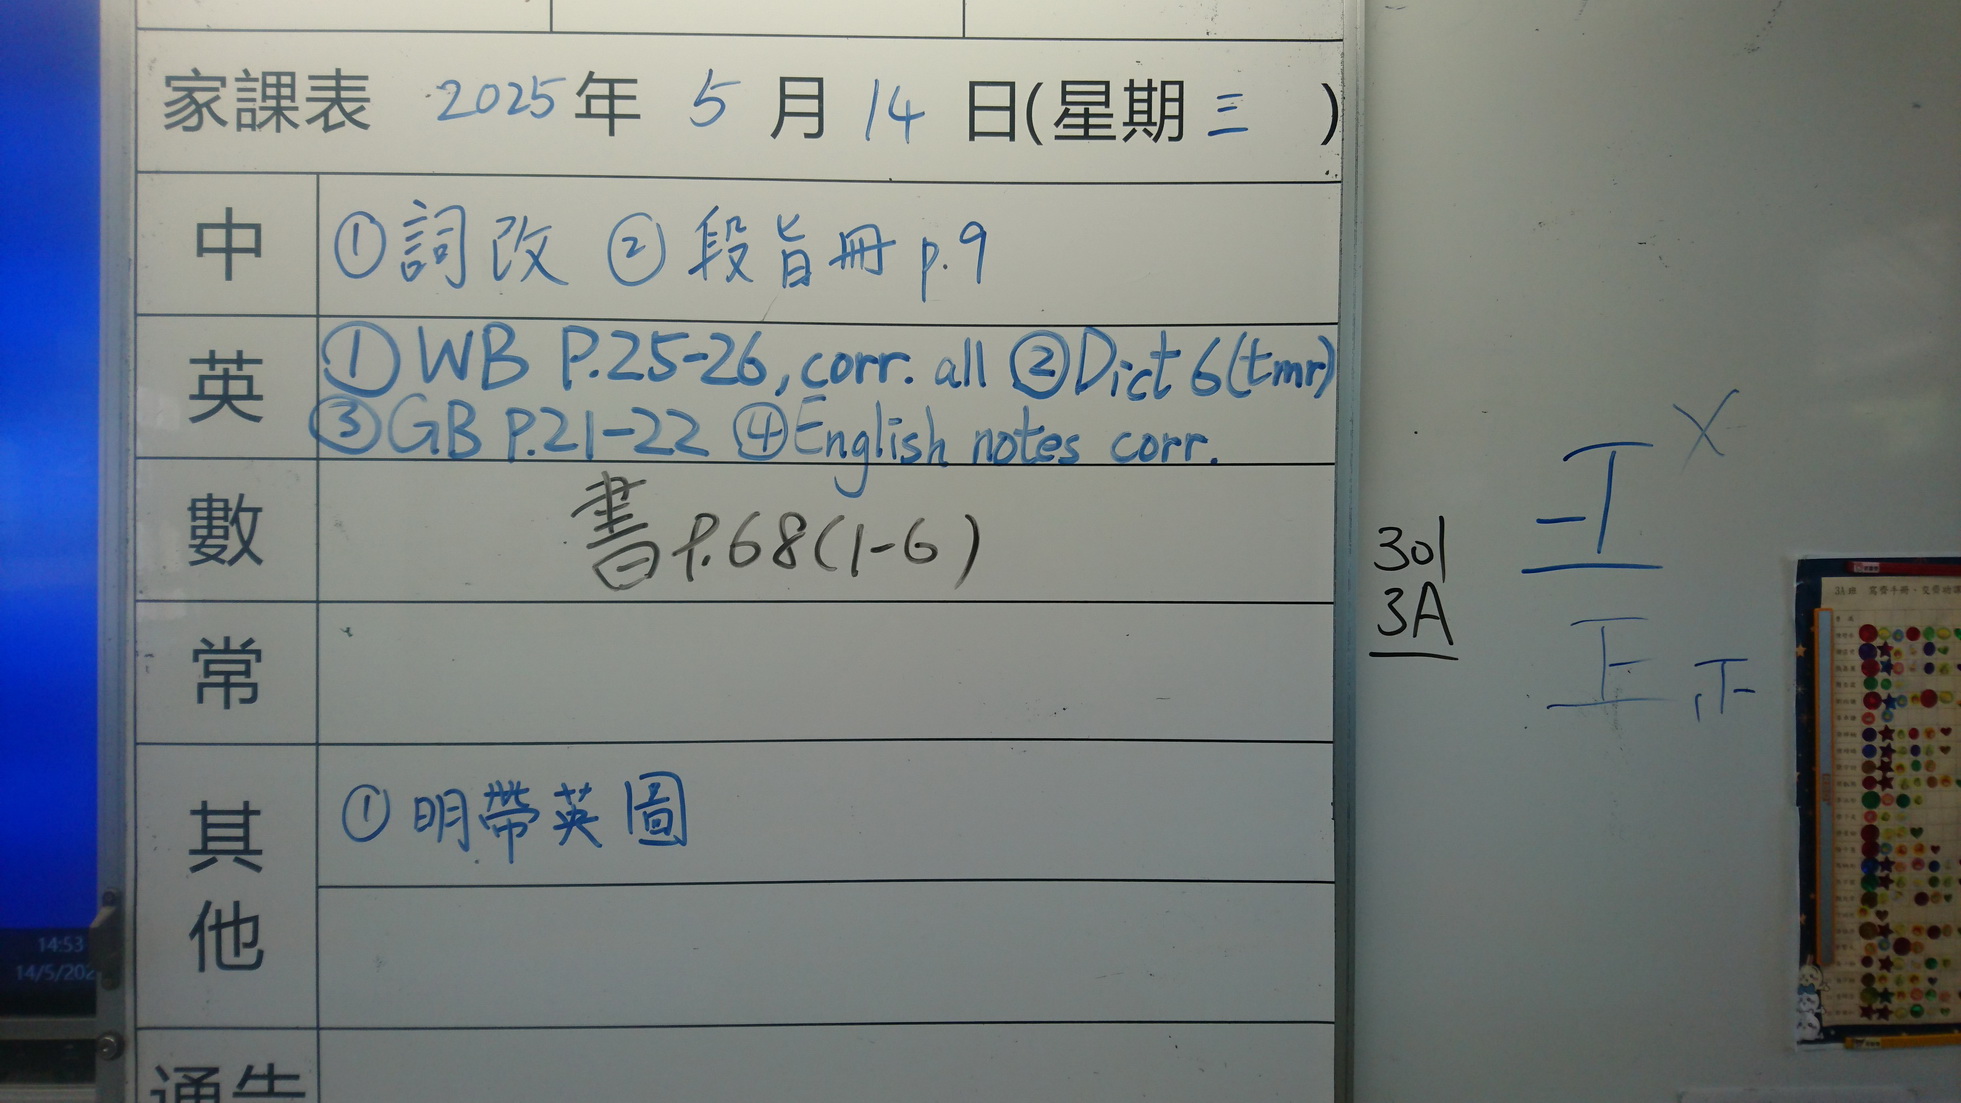 家課表 2025年 5月 14日(星期三 )
中 ①詞改 ②段旨冊 p.9
英 ①WB P.25-26, corr. all ②Dict 6(tmr)
③GB P.21-22 ④English notes corr.
數 書 P.68(1-6)
常
其他 ①明帶英圖
通告
301
3A
14:53
14/5/202